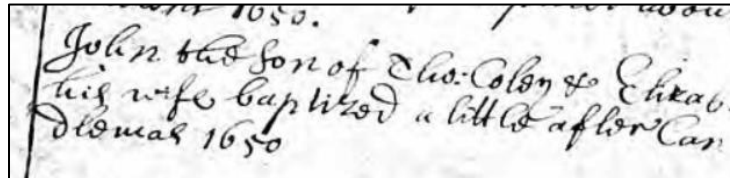 1650.
John the son of Tho: Coley & Elizab
his wife baptized a little after Can
dlemas 1650